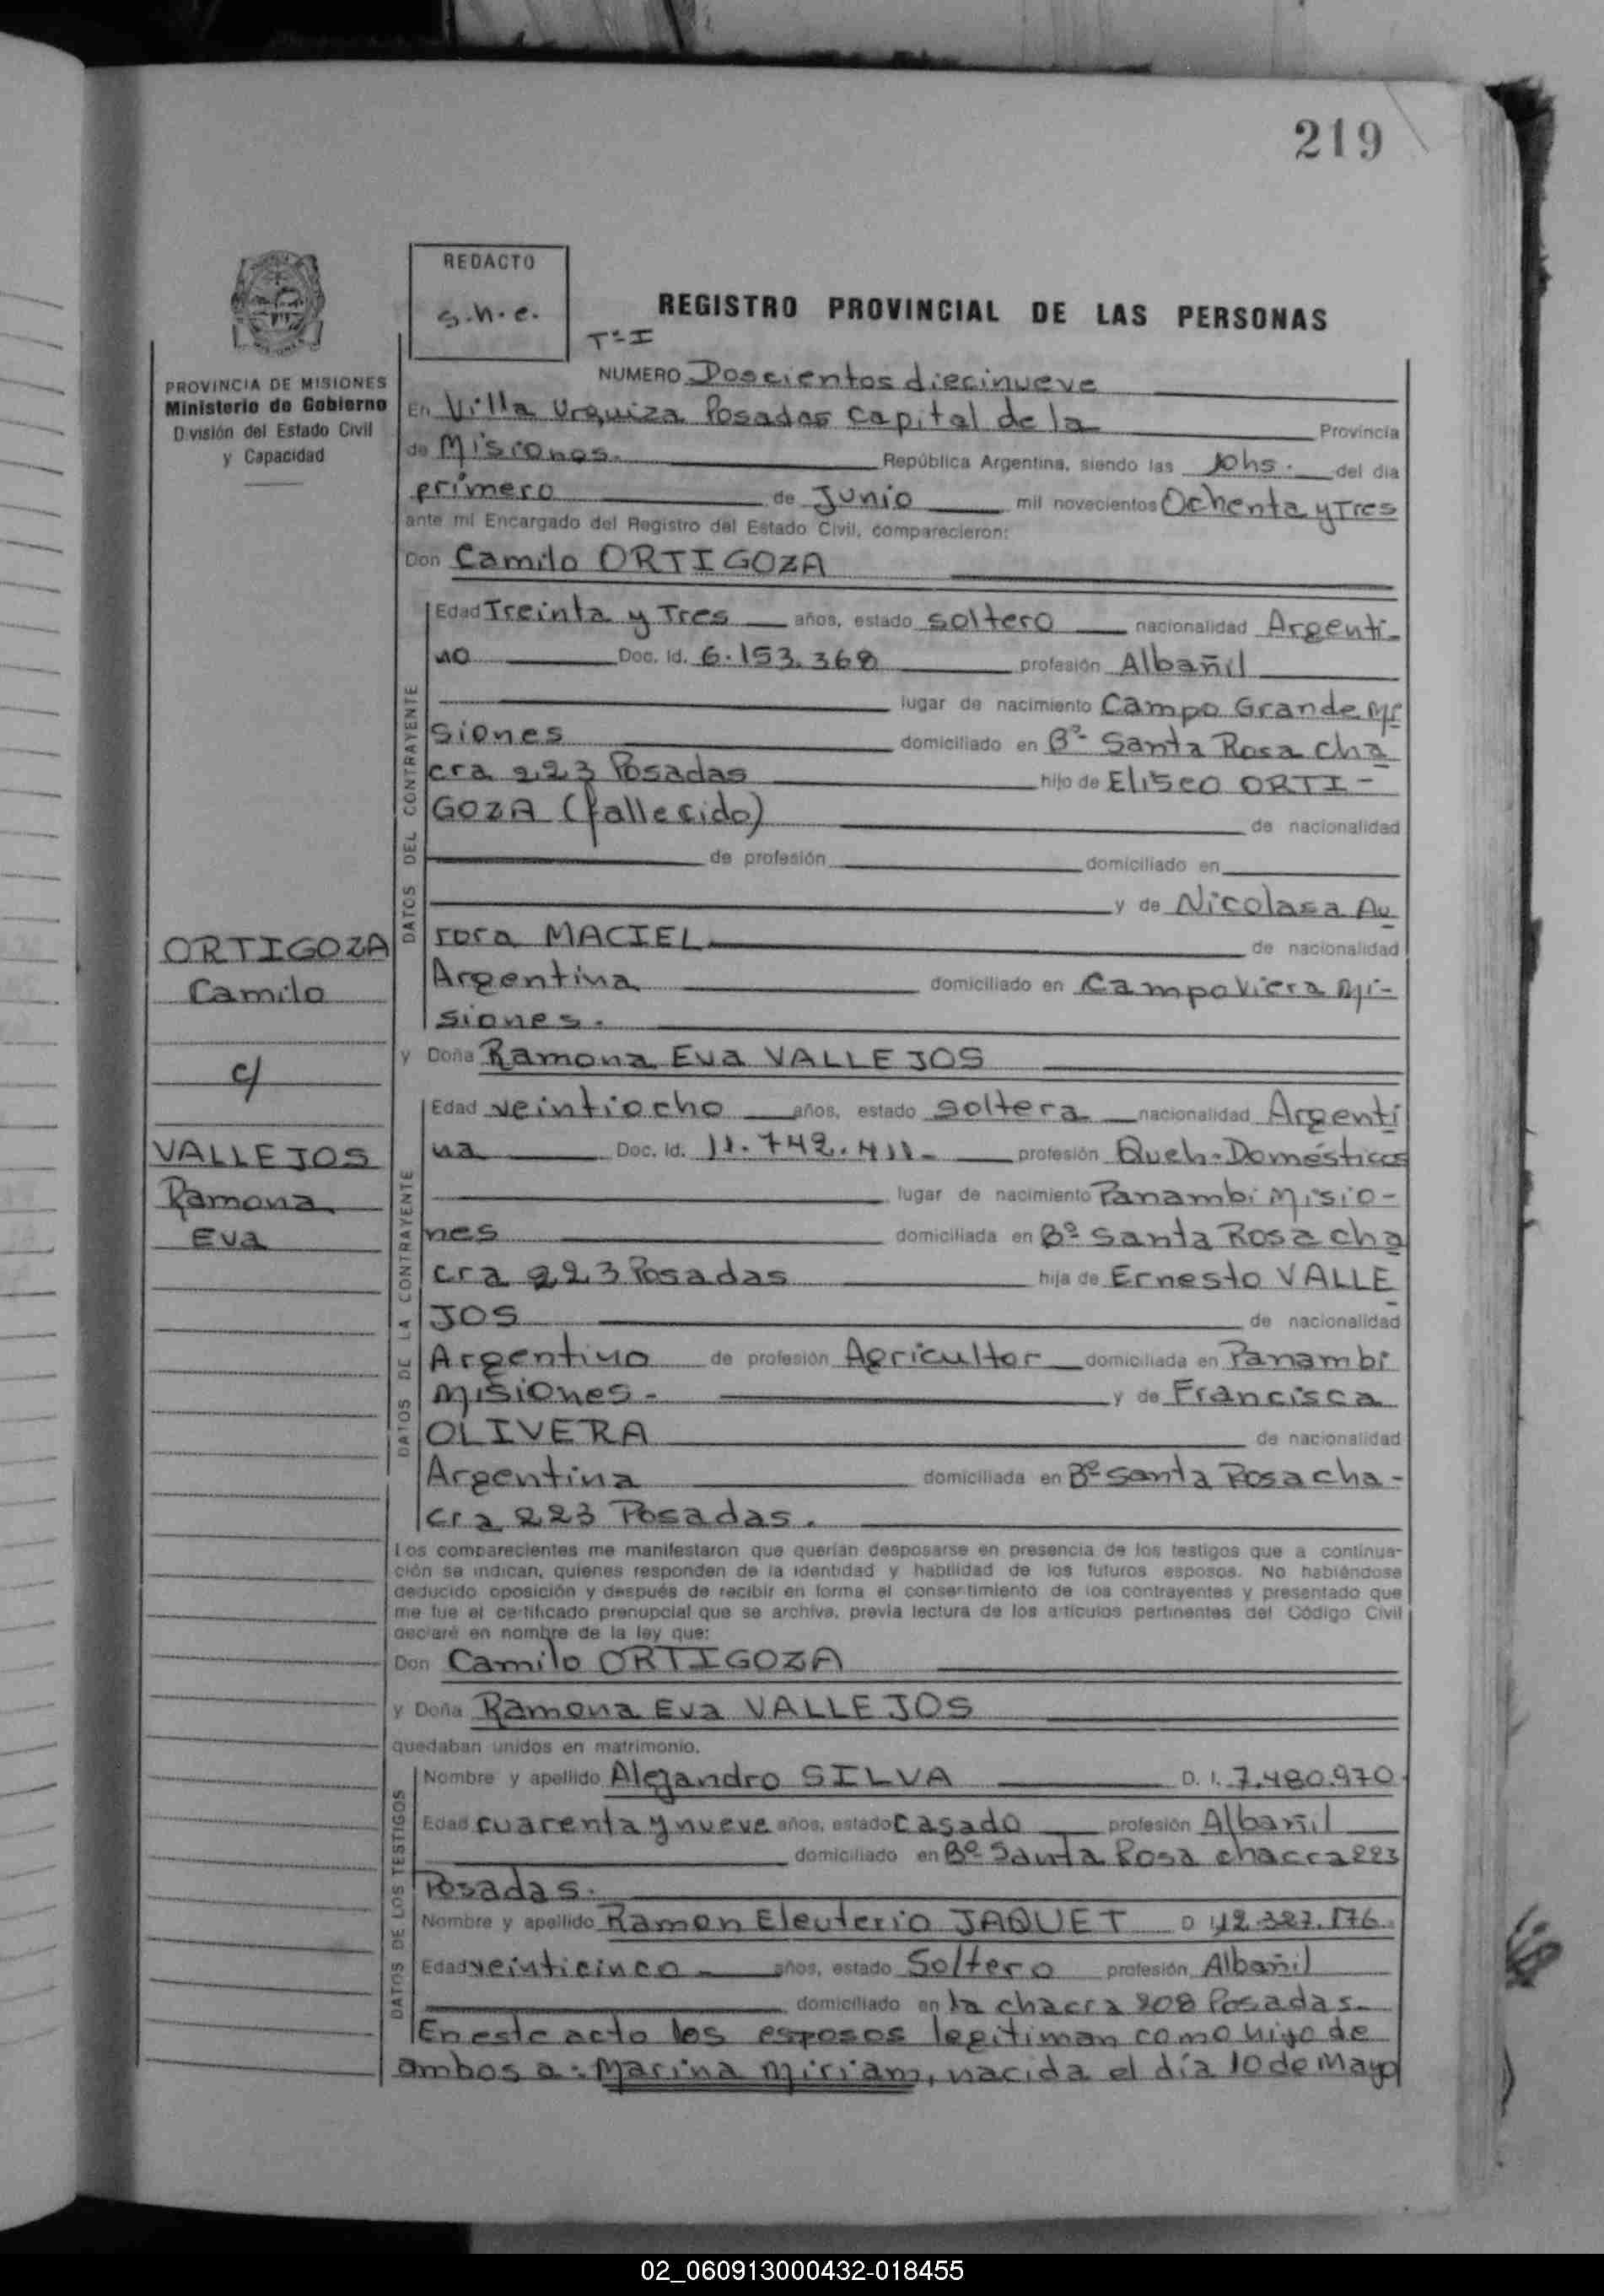 219
REDACTO
s.h.e.
REGISTRO PROVINCIAL DE LAS PERSONAS
Tº I
PROVINCIA DE MISIONES
Ministerio de Gobierno
División del Estado Civil
y Capacidad
NUMERO Doscientos diecinueve
En Villa Urquiza Posadas Capital de la Provincia
de Misiones. República Argentina, siendo las 10hs. del día
primero de Junio mil novecientos Ochenta y Tres
ante mí Encargado del Registro del Estado Civil, comparecieron:
Don Camilo ORTIGOZA
DATOS DEL CONTRAYENTE
Edad Treinta y Tres años, estado soltero nacionalidad Argenti-
no Doc. Id. 6.153.368 profesión Albañil
lugar de nacimiento Campo Grande Mi
siones domiciliado en Bº Santa Rosa cha
cra 223 Posadas hijo de Eliseo ORTI-
GOZA (fallecido) de nacionalidad
de profesión domiciliado en
y de Nicolasa Au
rora MACIEL de nacionalidad
Argentina domiciliado en Campo Viera Mi-
siones.
ORTIGOZA
Camilo
c/
VALLEJOS
Ramona
Eva
y Doña Ramona Eva VALLEJOS
DATOS DE LA CONTRAYENTE
Edad veintiocho años, estado soltera nacionalidad Argenti
na Doc. Id. 11.742.411- profesión Queh. Domésticos
lugar de nacimiento Panambi Misio-
nes domiciliada en Bº Santa Rosa cha
cra 223 Posadas hija de Ernesto VALLE
JOS de nacionalidad
Argentino de profesión Agricultor domiciliada en Panambi
Misiones- y de Francisca
OLIVERA de nacionalidad
Argentina domiciliada en Bº Santa Rosa cha-
cra 223 Posadas.
Los comparecientes me manifestaron que querían desposarse en presencia de los testigos que a continua-
ción se indican, quienes responden de la identidad y habilidad de los futuros esposos. No habiéndose
deducido oposición y después de recibir en forma el consentimiento de los contrayentes y presentado que
me fue el certificado prenupcial que se archiva, previa lectura de los artículos pertinentes del Código Civil
declaré en nombre de la ley que:
Don Camilo ORTIGOZA
y Doña Ramona Eva VALLEJOS
quedaban unidos en matrimonio.
DATOS DE LOS TESTIGOS
Nombre y apellido Alejandro SILVA D. I. 7.480.970
Edad cuarenta y nueve años, estado casado profesión Albañil
domiciliado en Bº Santa Rosa chacra 223
Posadas.
Nombre y apellido Ramon Eleuterio JAQUET D I 12.327.176.
Edad veinticinco- años, estado Soltero profesión Albañil
domiciliado en la chacra 208 Posadas.
En este acto los esposos legitiman como hijo de
ambos a: Marina Miriam, nacida el día 10 de Mayo
02_060913000432-018455